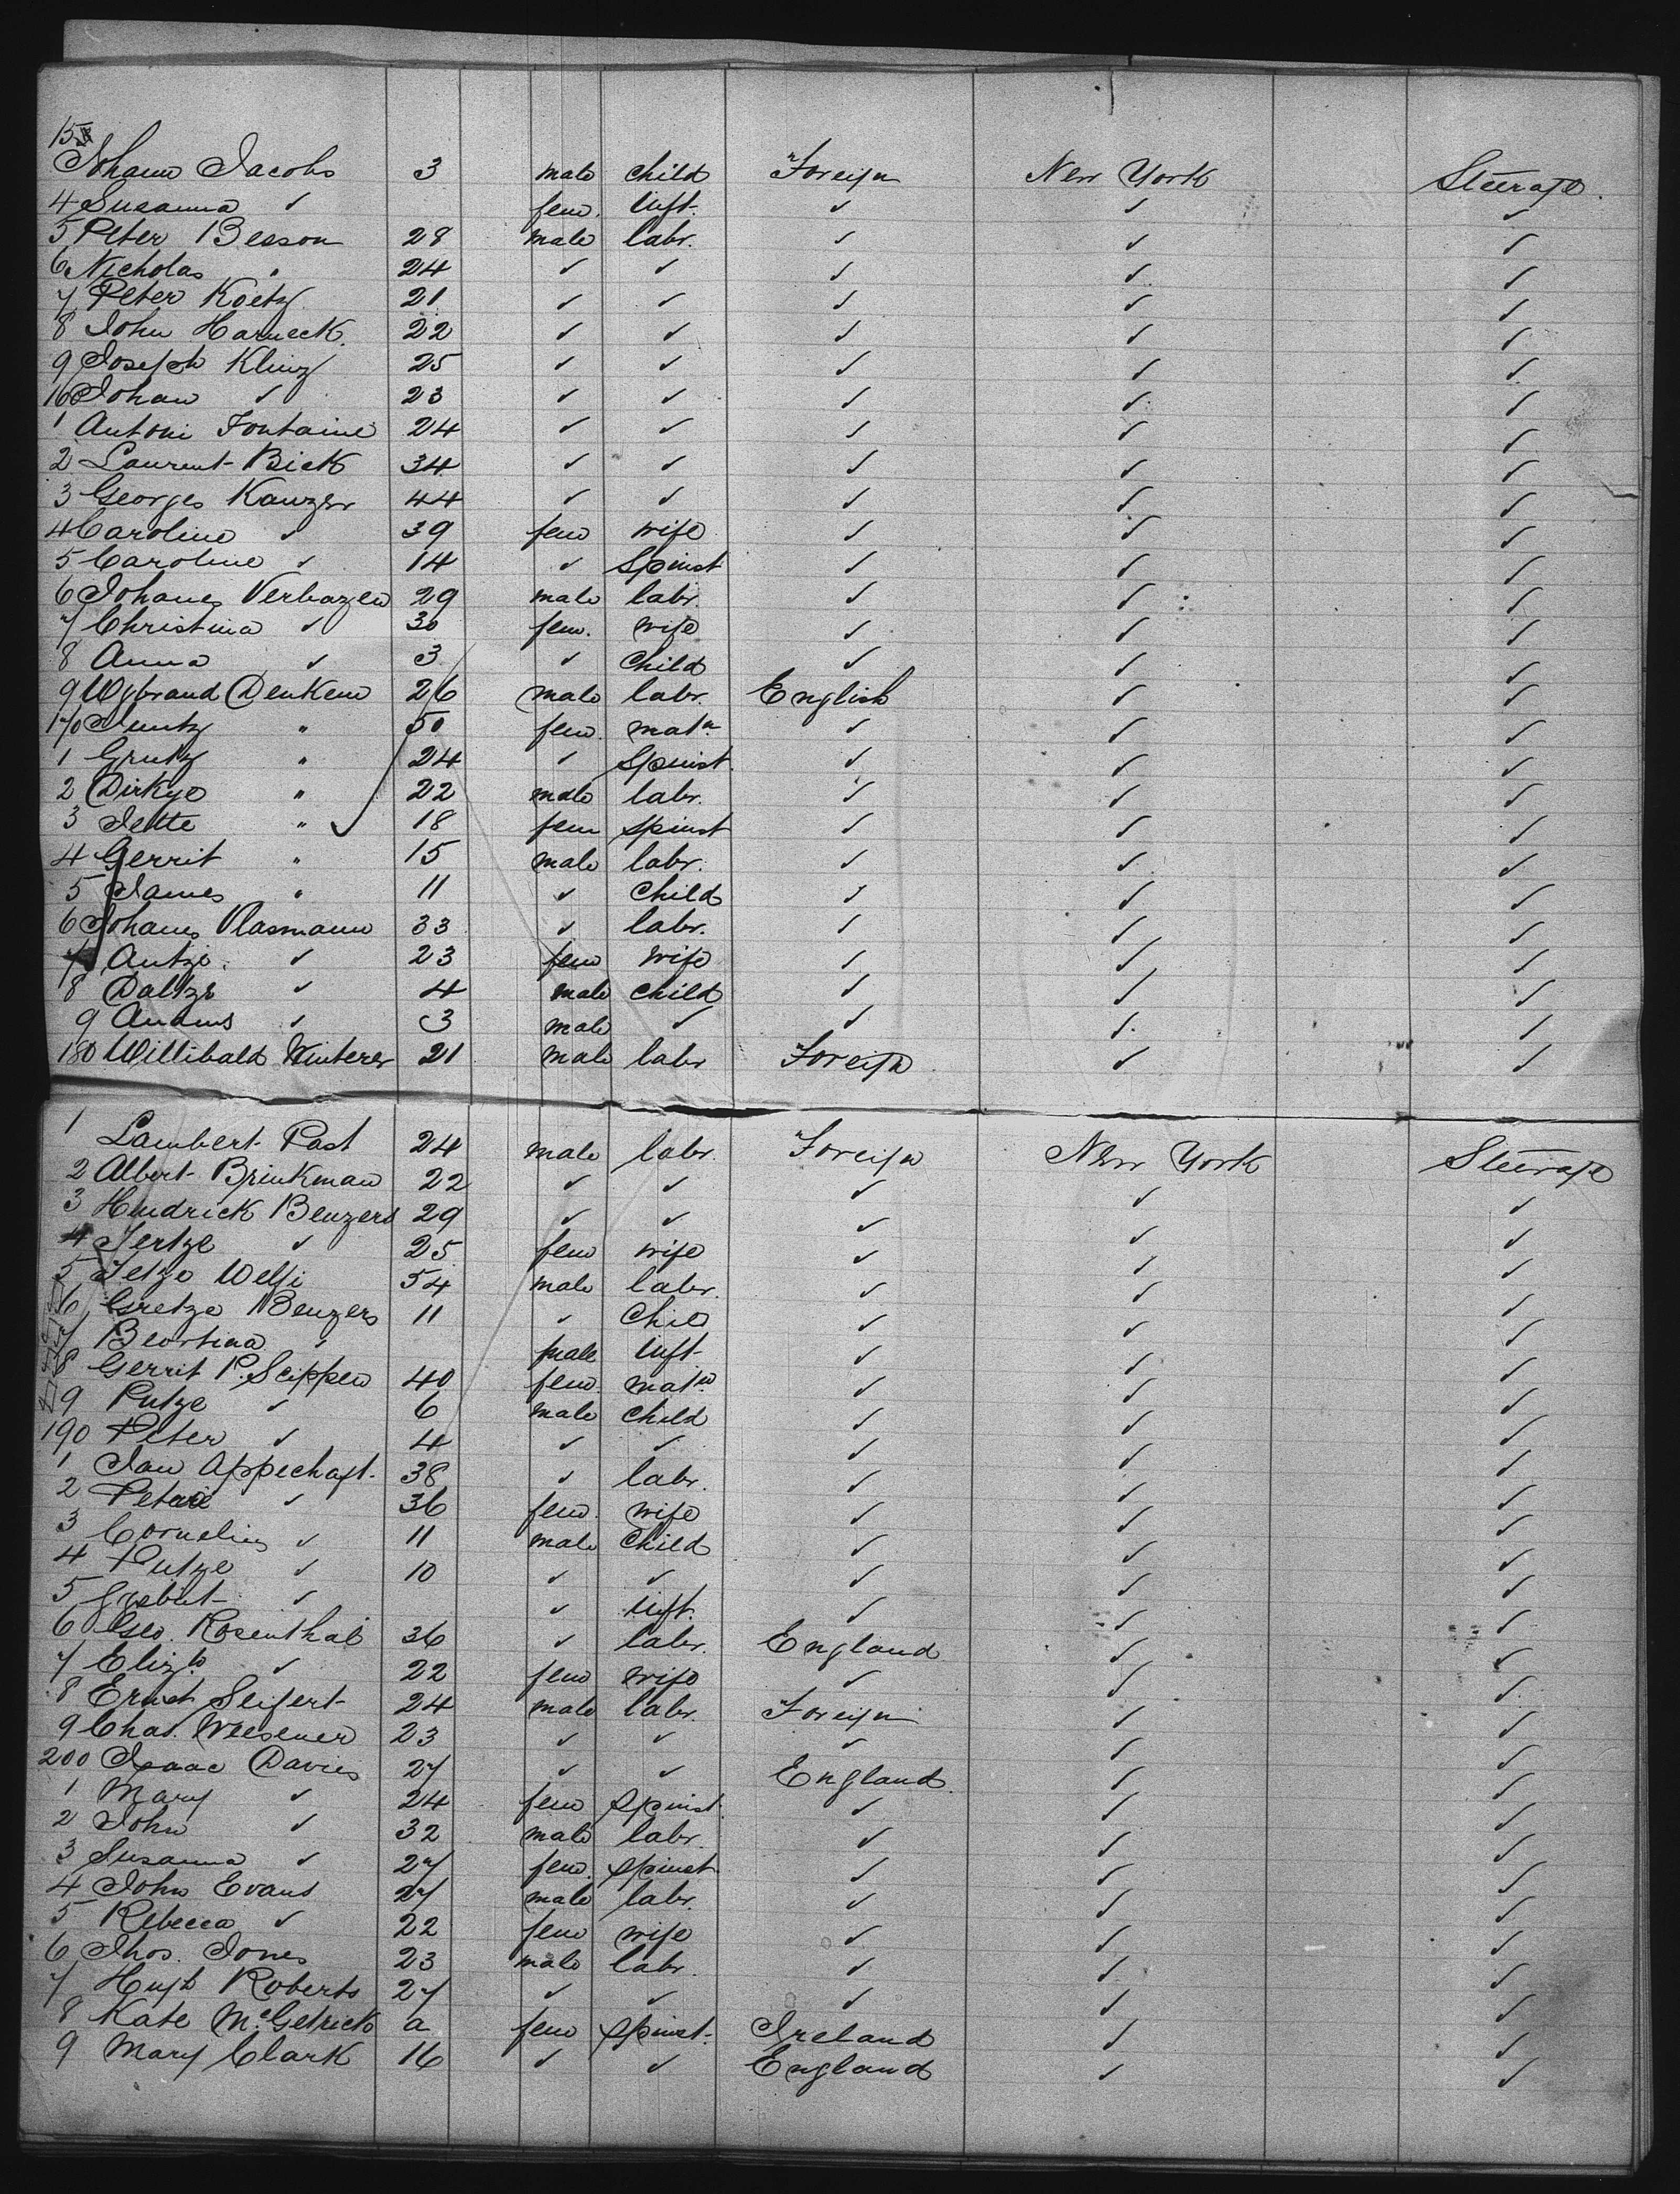 153
Johann Jacobs 3 male child Foreign New York Steerage
4 Susanna ✓ fem. inft. ✓ ✓ ✓
5 Peter Besson 28 male labr. ✓ ✓ ✓
6 Nicholas " 24 ✓ ✓ ✓ ✓ ✓
7 Peter Koetz 21 ✓ ✓ ✓ ✓ ✓
8 John Harneck 22 ✓ ✓ ✓ ✓ ✓
9 Joseph Klinz 25 ✓ ✓ ✓ ✓ ✓
160 Johan ✓ 23 ✓ ✓ ✓ ✓ ✓
1 Antoni Fontaine 24 ✓ ✓ ✓ ✓ ✓
2 Laurent Bick 34 ✓ ✓ ✓ ✓ ✓
3 Georges Kanzer 44 ✓ ✓ ✓ ✓ ✓
4 Caroline ✓ 39 fem wife ✓ ✓ ✓
5 Caroline ✓ 14 ✓ Spinst ✓ ✓ ✓
6 Johanes Verhazen 29 male labr. ✓ ✓ ✓
7 Christina ✓ 30 fem. wife ✓ ✓ ✓
8 Anna ✓ 3 ✓ Child ✓ ✓ ✓
9 Wybrand Denkem 26 male labr. English ✓ ✓
170 " 50 fem. matn ✓ ✓ ✓
1 Grutz " 24 ✓ Spinst. ✓ ✓ ✓
2 Dirkye " 22 male labr. ✓ ✓ ✓
3 Jette " 18 fem spinst ✓ ✓ ✓
4 Gerrit " 15 male labr. ✓ ✓ ✓
5 James " 11 ✓ Child ✓ ✓ ✓
6 Johanes Vlasmann 33 ✓ labr. ✓ ✓ ✓
7 Antze ✓ 23 fem wife ✓ ✓ ✓
8 Daltze ✓ 4 male child ✓ ✓ ✓
9 ✓ 3 male ✓ ✓ ✓ ✓
180 Willibald Winterer 21 male labr Foreign ✓ ✓
1 Lambert Past 24 male labr. Foreign New York Steerage
2 Albert Brinkman 22 ✓ ✓ ✓ ✓ ✓
3 Hendrick Benzers 29 ✓ ✓ ✓ ✓ ✓
4 Jertze ✓ 25 fem wife ✓ ✓ ✓
5 Jetze Welfi 54 male labr. ✓ ✓ ✓
6 Gretze Benzers 11 ✓ Child ✓ ✓ ✓
7 Beortina ✓ male inft ✓ ✓ ✓
8 Gerrit P. Scippen 40 fem. matn ✓ ✓ ✓
9 Putze ✓ 6 male child ✓ ✓ ✓
190 Peter ✓ 4 ✓ ✓ ✓ ✓ ✓
1 Jan Appechaft. 38 ✓ labr. ✓ ✓ ✓
2 ✓ 36 fem. wife ✓ ✓ ✓
3 Cornelius ✓ 11 male Child ✓ ✓ ✓
4 Putze ✓ 10 ✓ ✓ ✓ ✓ ✓
5 ✓ ✓ inft. ✓ ✓ ✓
6 Geo. Rosenthal 36 ✓ labr. England ✓ ✓
7 Elizh ✓ 22 fem wife ✓ ✓ ✓
8 Ernst Seifert 24 male labr. Foreign ✓ ✓
9 Chas. Weesener 23 ✓ ✓ ✓ ✓ ✓
200 Isaac Davies 27 ✓ ✓ England. ✓ ✓
1 Mary ✓ 24 fem spinst. ✓ ✓ ✓
2 John ✓ 32 male labr. ✓ ✓ ✓
3 Susanna ✓ 27 fem. spinst. ✓ ✓ ✓
4 John Evans 27 male labr. ✓ ✓ ✓
5 Rebecca ✓ 22 fem wife ✓ ✓ ✓
6 Thos. Jones 23 male labr. ✓ ✓ ✓
7 Hugh Roberts 27 ✓ ✓ ✓ ✓ ✓
8 Kate McGetrick a fem spinst. Ireland ✓ ✓
9 Mary Clark 16 ✓ ✓ England ✓ ✓